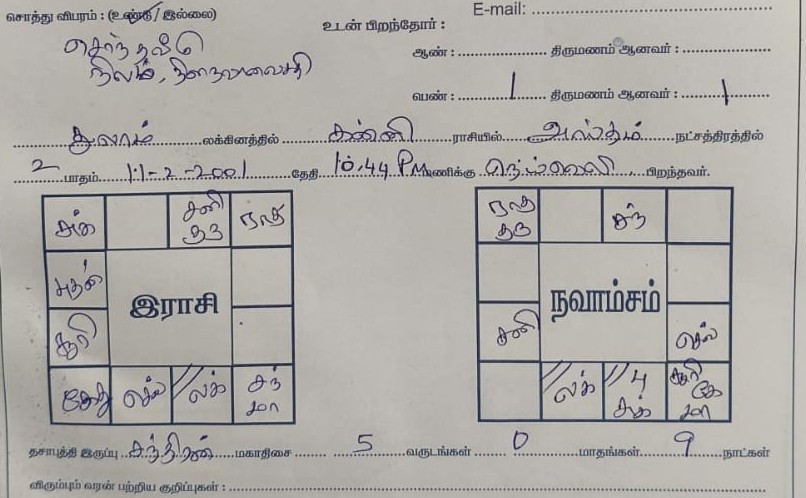 சொத்து விபரம் : (உண்டு / இல்லை)
E-mail: ..............................
சொந்த வீடு
நிலம்,
உடன் பிறந்தோர் :
ஆண் : .................... திருமணம் ஆனவர் : ....................
பெண் : ..........1.......... திருமணம் ஆனவர் : ..........1..........
துலாம் லக்கினத்தில் கன்னி ராசியில் அஸ்தம் நட்சத்திரத்தில்
2 பாதம் 11-2-2001 தேதி 10.44 PM மணிக்கு பிறந்தவர்.
சுக் சனி குரு ராகு
புதன்
இராசி
சூரி
கேது செவ் லக் சந் மா
ராகு குரு சந்
நவாம்சம்
சனி செவ்
லக் பு சுக் சூரி கே மா
தசாபுத்தி இருப்பு சந்திரன் மகாதிசை 5 வருடங்கள் 0 மாதங்கள் 9 நாட்கள்
விரும்பும் வரன் பற்றிய குறிப்புகள் : ..............................